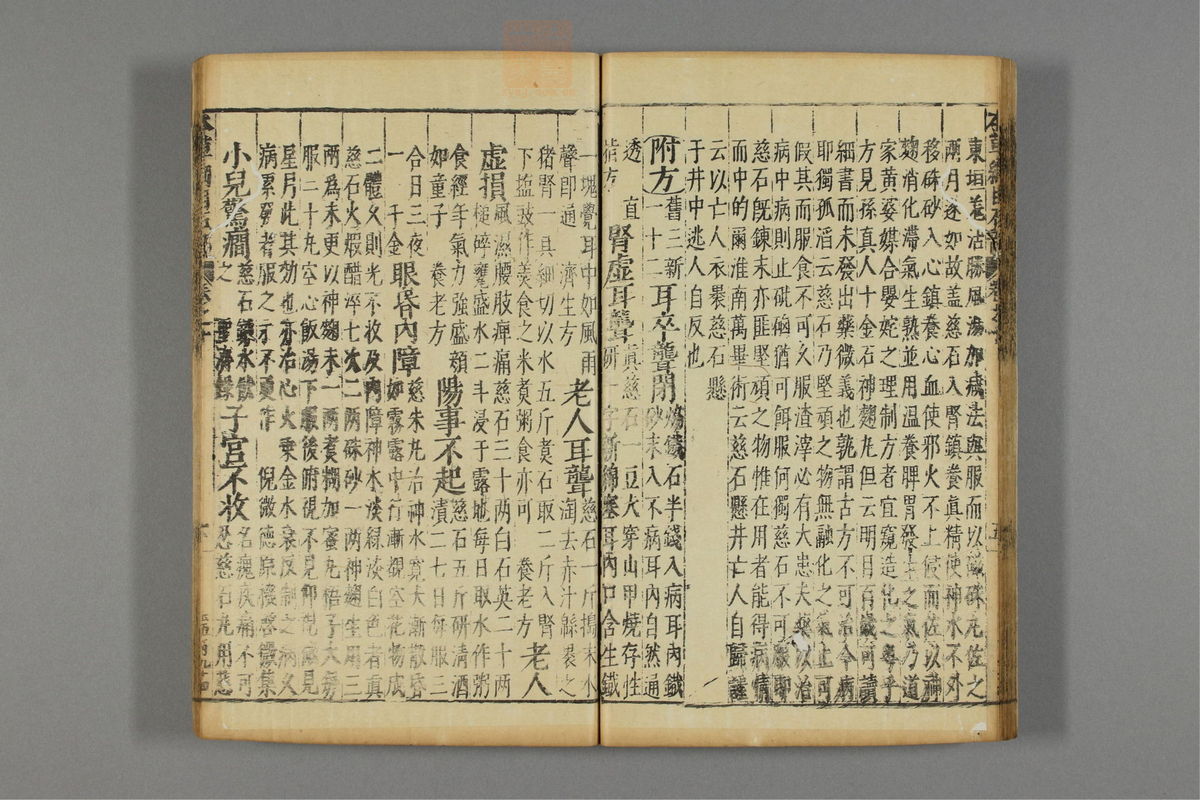 東垣李法勝風湯加減法與服而以磁硃丸佐之
兩月遂如故蓋慈石入腎鎮養真精使神水不外
移硃砂入心鎮養心血使邪火不上侵而佐以神
麴消化滯氣生熟並用溫養脾胃發生之氣乃道
家黃婆媒合嬰姹之理制方者宜窺造化之奧乎
方見孫真人千金方神麴丸但云明目百歲可讀
細書而未發出藥微義也孰謂古方不可治今病
耶獨孤滔云慈石乃堅頑之物無融化之氣止可
假其而服食不可久服渣滓必有大患夫藥以治
病中病則止硇砂猶可餌服何獨慈石不可服耶
慈石既鍊末亦匪堅頑之物惟在用者能得病情
而中的爾淮南萬畢術云慈石懸井亡人自歸註
云以亡人衣裹慈石懸
于井中逃人自反也
附方 舊三新一十二 耳卒聾閉 燒鐵石半錢入病耳內鐵砂末入不病耳內自然通
透 直指方 腎虛耳聾 真慈石一豆大穿山甲燒存性研一字新綿塞耳內口含生鐵
一塊覺耳中如風雨聲即通 濟生方 老人耳聾 慈石一斤搗末水淘去赤汁綿裹之
猪腎一具細切以水五斤煑石取二斤入腎
下塩豉作羹食之米煑粥食亦可 養老方 老人
虛損 風濕腰肢痺痛慈石三十兩白石英二十兩槌碎甕盛水二斗浸于露地每日取水作粥
食經年氣力強盛顏如童子 養老方 陽事不起 慈石五斤研清酒漬二七日每服三
合日三夜一 千金 眼昏內障 慈朱丸治神水寬大漸散昏如霧露中行漸覩空花物成
二體久則光不收及內障神水淡綠淡白色者真
慈石火煅醋淬七次二兩硃砂一兩神麴生用三
兩爲末更以神麴末一兩煑糊加蜜丸梧子大每
服二十丸空心飯湯下服後俯視不見仰視微見
星月此其効也亦治心火乗金水衰反制之病久
病累發者服之永不更作 倪微德原機啓微集
小兒驚癇 慈石鍊水飲之 聖濟錄 子宮不收 名㿗疾痛不可忍慈石丸用慈